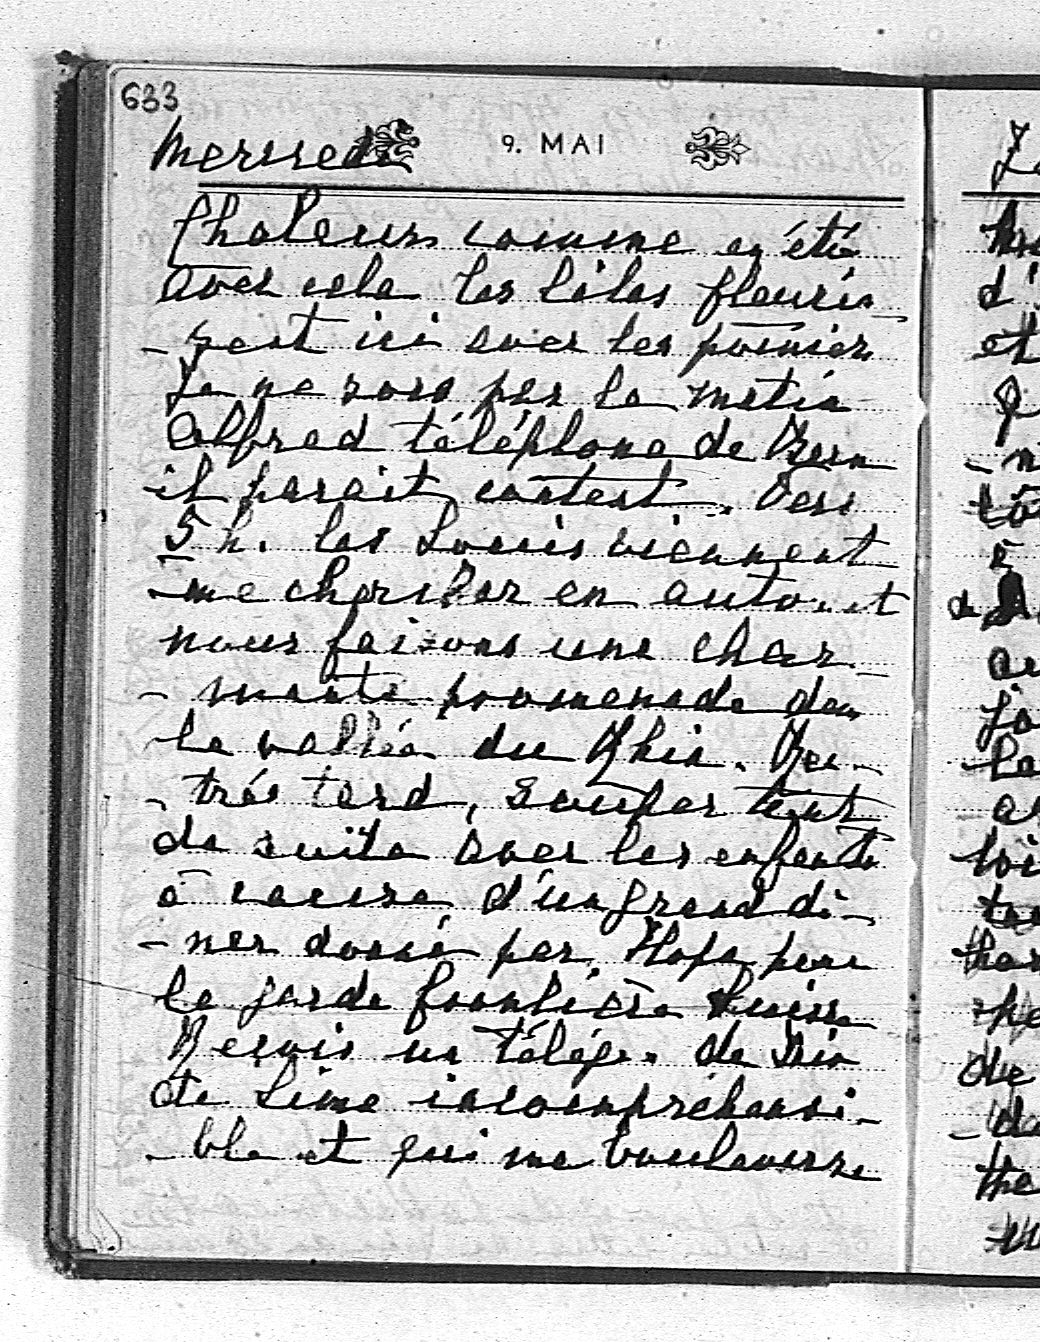 633
Mercredi 9. MAI
Chaleurs comme en été
avec cela les lilas fleuris-
- sent ici avec les pomiers
Je ne sors pas la matin
Alfred téléphone de Bern
il parait content. Vers
5 h. les Louis viennent
me chercher en auto et
nous faisons une char-
- mante promenade dans
la vallée du Rhin. Ren-
- trés tard, Souper tout
de suite avec les enfants
à cause d'un grand di-
- ner donné par pour
la garde frontière Suisse
Reçois un télég. de
de Lima incompréhensi-
- ble et qui me bouleverse